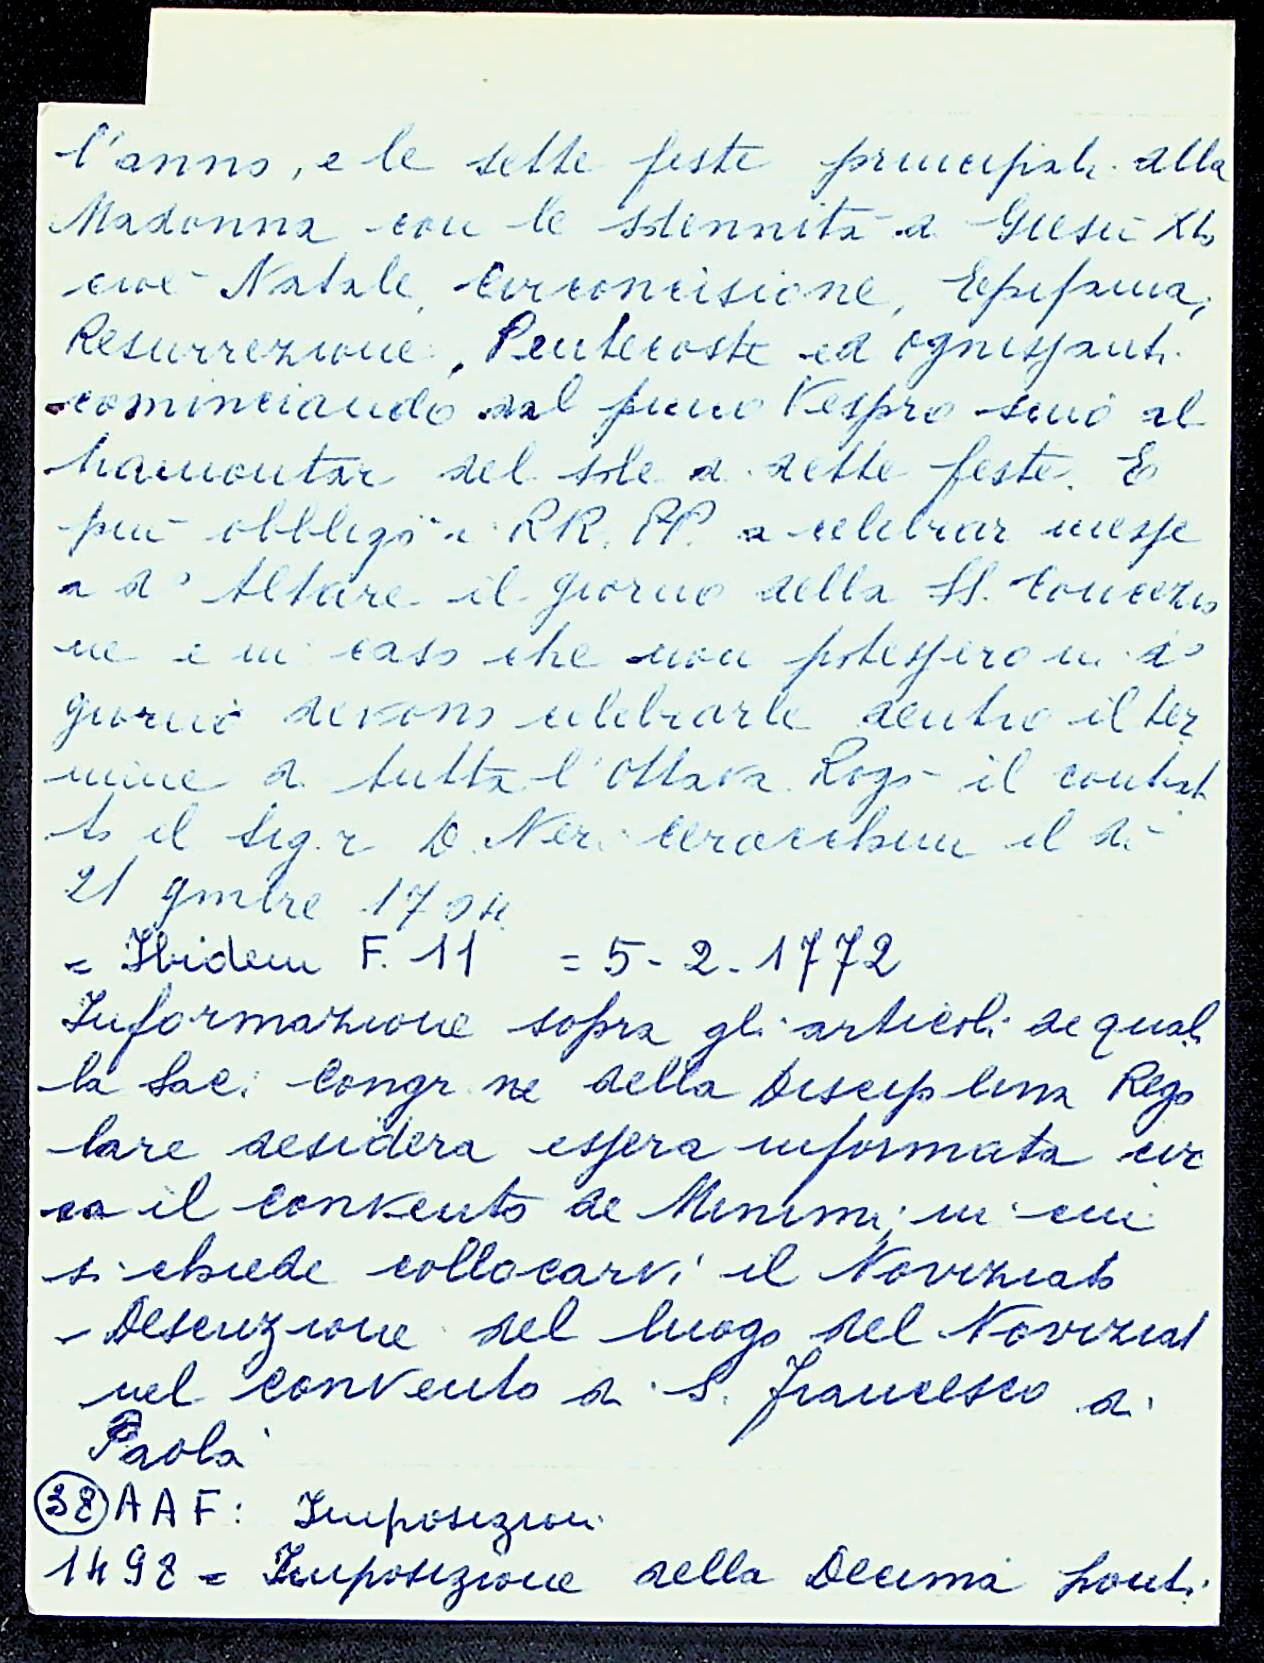 l'anno, e le sette feste principali della
Madonna con le solennità di Giesù Xto
cioè Natale, Circoncisione, Epifania,
Resurrezione, Pentecoste ed ognissanti
cominciando dal primo Vespro sino al
tramontar del sole di dette feste. E
più obbligò i RR. PP. a celebrar messe
a do Altare il giorno della SS. Concezio
ne e in caso che non potessero in do
giorno devono celebrarle dentro il ter
mine di tutta l'Ottava Rogò il contrat
to il Sig.r D. Neri il dì
21 9mbre 1704
= Ibidem F. 11 = 5-2-1772
Informazione sopra gli articoli de quali
la Sac. Congr.ne della Disciplina Rego
lare desidera essere informata cir
ca il convento de Minimi, in cui
si chiede collocarvi il Noviziato
- Descrizione del luogo del Noviziat
nel convento di S. Francesco di
Paola
38 AAF: Imposizioni
1498 = Imposizione della Decima Ponti